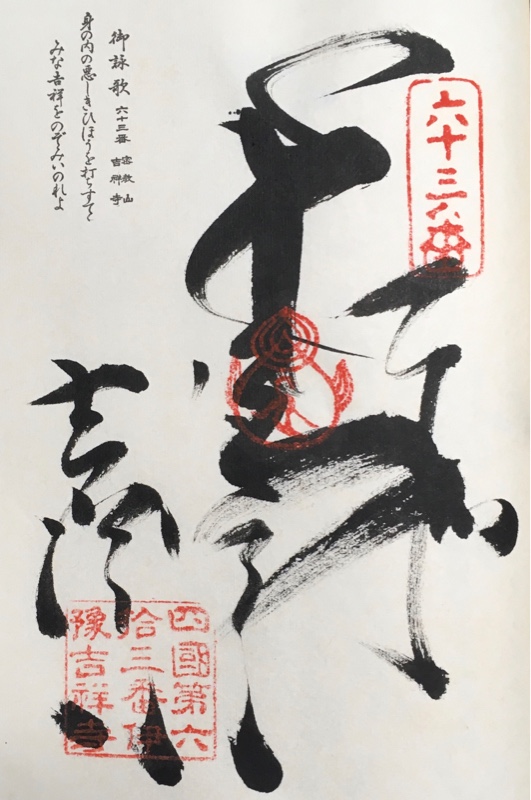 御詠歌 六十三番 密教山 吉祥寺
身の内の悪しきひほうを打ちすてゝ
みな吉祥をのぞみいのれよ
六十三番
吉祥寺
四國第六
拾三番伊
豫吉祥寺